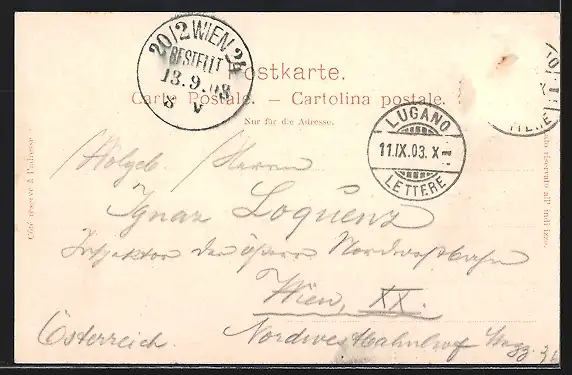 20/2 WIEN 24
BESTELLT
13.9.03
8 V
Postkarte.
Carte Postale. — Cartolina postale.
Nur für die Adresse.
LUGANO
11.IX.03.X
LETTERE
Côté réservé à l'adresse
Lato riservato all' indirizzo.
Wolgeb. Herrn
Ignaz Loquenz
Inspektor der österr Nordwestbahn
Wien, XX.
Österreich. Nordwestbahnhof